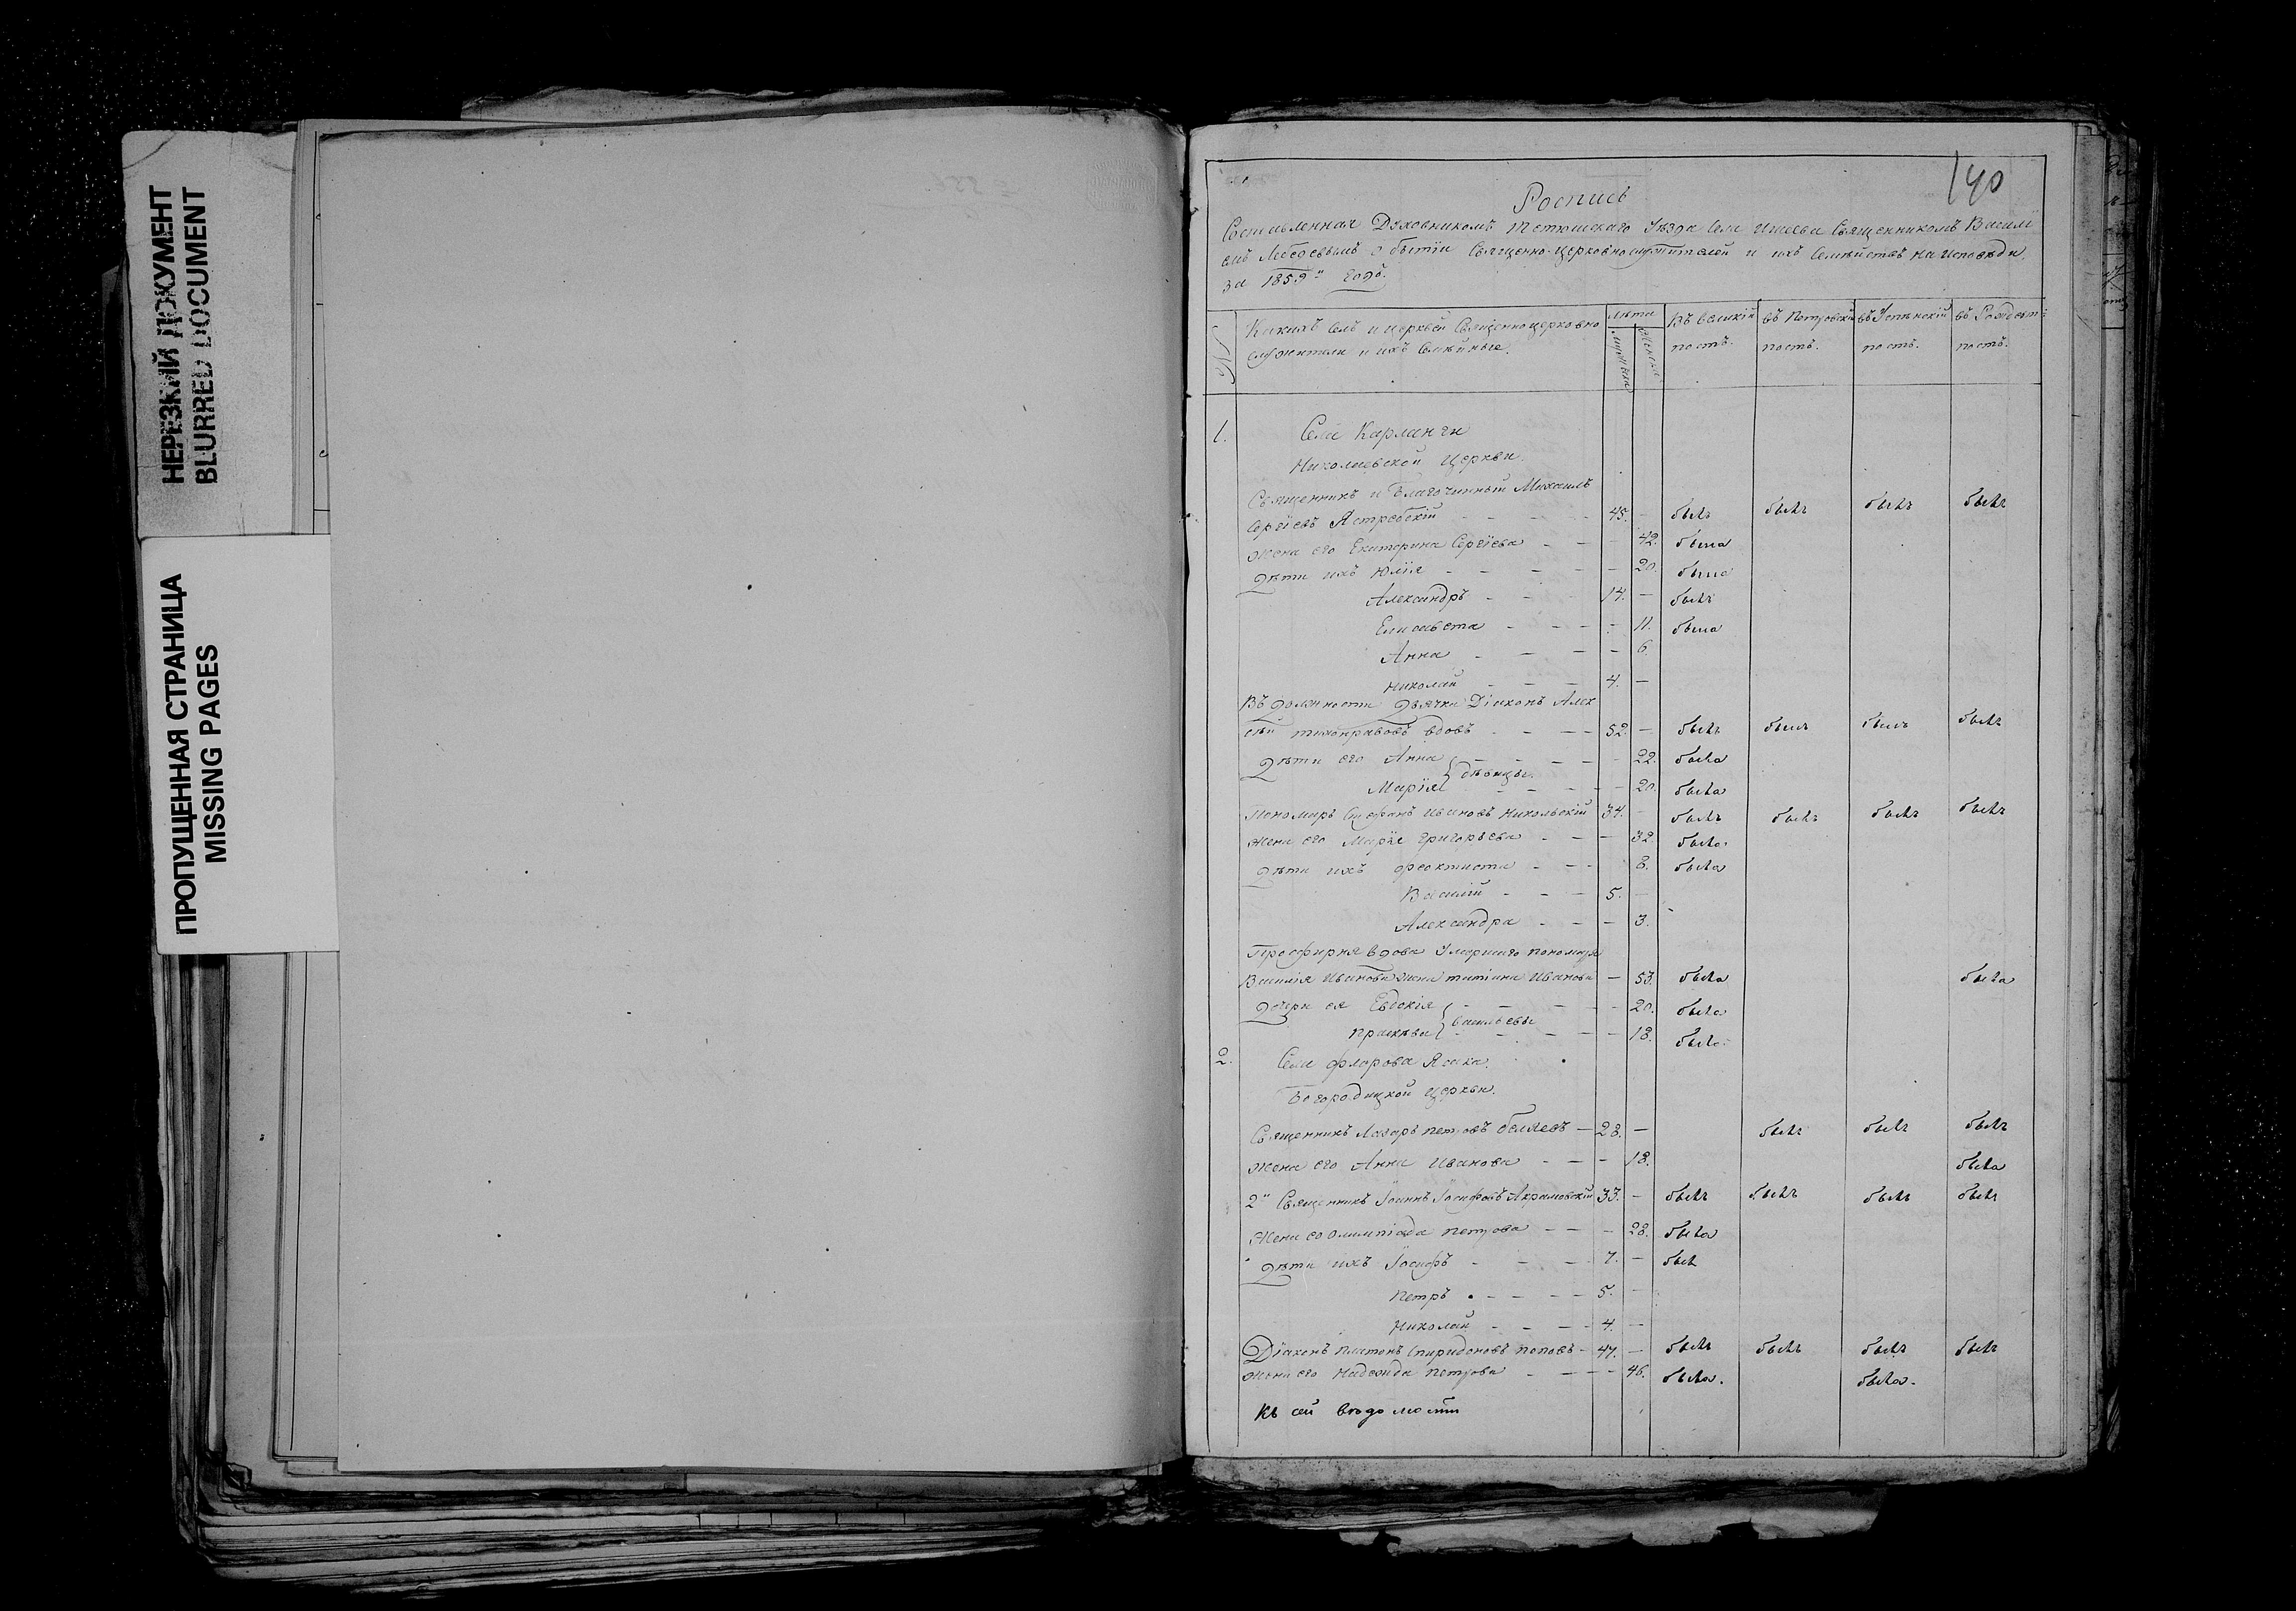 НЕРЕЗКИЙ ДОКУМЕНТ
BLURRED DOCUMENT
ПРОПУЩЕННАЯ СТРАНИЦА
MISSING PAGES
140
Роспись
Составленная Духовникомъ Тетюшскаго Уѣзда Села Ишеева Священникомъ Василі
емъ Лебедевымъ о бытіи Священно-церковнослужителей и ихъ Семействъ на исповѣди
за 1859й Годъ.
№ Какихъ Селъ и церквей Священноцерковно лѣта Въ великій въ Петровскій въ Успѣнскій въ Рождест:
служители и ихъ Семѣйные. мужска женска постъ. постъ. постъ. постъ.
1. Села Карланги
Николаевской Церкви.
Священникъ и Благочинный Михаилъ
Сергіевъ Ястребскій - - - - 45. - былъ былъ былъ былъ
Жена его Екатерина Сергіева - - - 42. была
Дѣти ихъ Юлія - - - - - 20. была
Александръ - - - 14. - былъ
Елисавета - - - - 11. была
Анна - - - - 6.
Николай - - - 4. -
Въ должности Дьячка Діаконъ Алек
сѣй Тихонравовъ вдовъ - - - - 52. - былъ былъ былъ былъ
Дѣти его Анна } - - - - - 22. была
Марія } дѣвицы. - - - - 20. была
Пономарь Стефанъ Ивановъ Никольскій 34. - былъ былъ былъ былъ
Жена его Марія Григорьева - - - 32. была.
Дѣти ихъ Феоктиста - - - 8. была
Василій - - - 5. -
Александра - - - 3.
Просфирня вдова Умершаго пономаря
Василія Иванова жена Татіана Иванова - 53. была была
Дочери ея Евдокія } - - - - - 20. была
Праскѣва } Васильевы - - - - 18. была.
2. Села Фролова Яшка.
Богородицкой Церкви.
Священникъ Лазарь Петровъ Беляевъ - 28. - былъ былъ былъ
Жена его Анна Иванова - - - 18. была
2й Священникъ Іоаннъ Іосифовъ Акрамовскій 33. - былъ былъ былъ былъ
Жена его Олимпіада Петрова - - - 28. была
Дѣти ихъ Іосифъ - - - - 7. - былъ
Петръ - - - - 5. -
Николай - - - - 4. -
Діаконъ Платонъ Спиридоновъ Поповъ - 47. - былъ былъ былъ былъ
Жена его Надежда Петрова - - - - 46. была. была.
Къ сей вѣдомости